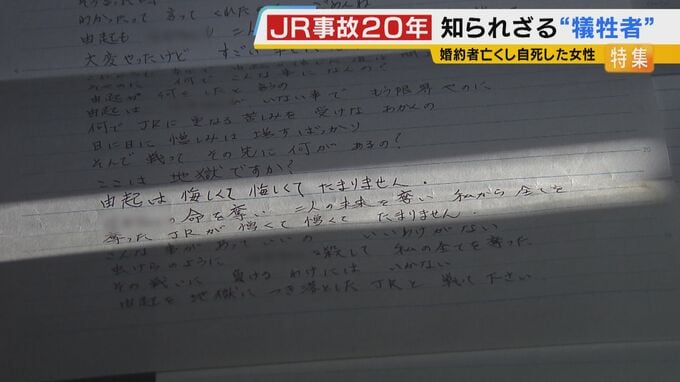 JR事故20年 知られざる“犠牲者”
婚約者亡くし自死した女性
特集
由起も
大変やったけど
由起が何をしたと言うの
由起は いない事で もう限界やのに
何で JRに 重なる苦しみを 受けな あかんの
日に日に 憎しみは 増すばっかり
そんで 戦って その先に 何が あるの?
ここは 地獄ですか?
由起は 悔しくて 悔しくて たまりません.
の命を奪い 二人の未来を奪い 私から 全てを
奪った JRが 憎くて 憎くて たまりません.
こんな 事が あって いいの いいわけがない
虫けらのように 殺して 私の全てを奪った
その戦いに 負ける わけには いかない
由起を 地獄に つき落とした JRと 戦って下さい
20